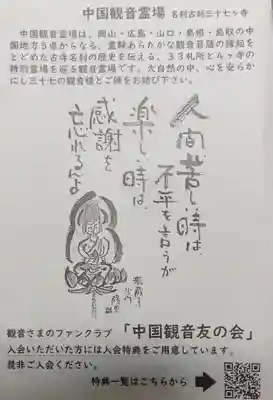 中国観音霊場 名刹古刹三十七ヶ寺
中国観音霊場は、岡山・広島・山口・島根・鳥取の中
国地方5県からなる、霊験あらたかな観音菩薩の縁起を
とどめた古寺名刹の歴史を伝える、33札所と4ヶ寺の
特別霊場を巡る観音霊場です。大自然の中、心を安らか
にし三十七の観音様とご縁をお結び下さい。
人間苦しい時は、
不平を言うが
楽しい時は、
感謝を
忘れるんよ
観音さまのファンクラブ 「中国観音友の会」
入会いただいた方には入会特典をご用意しています。
是非ご入会ください。
特典一覧はこちらから